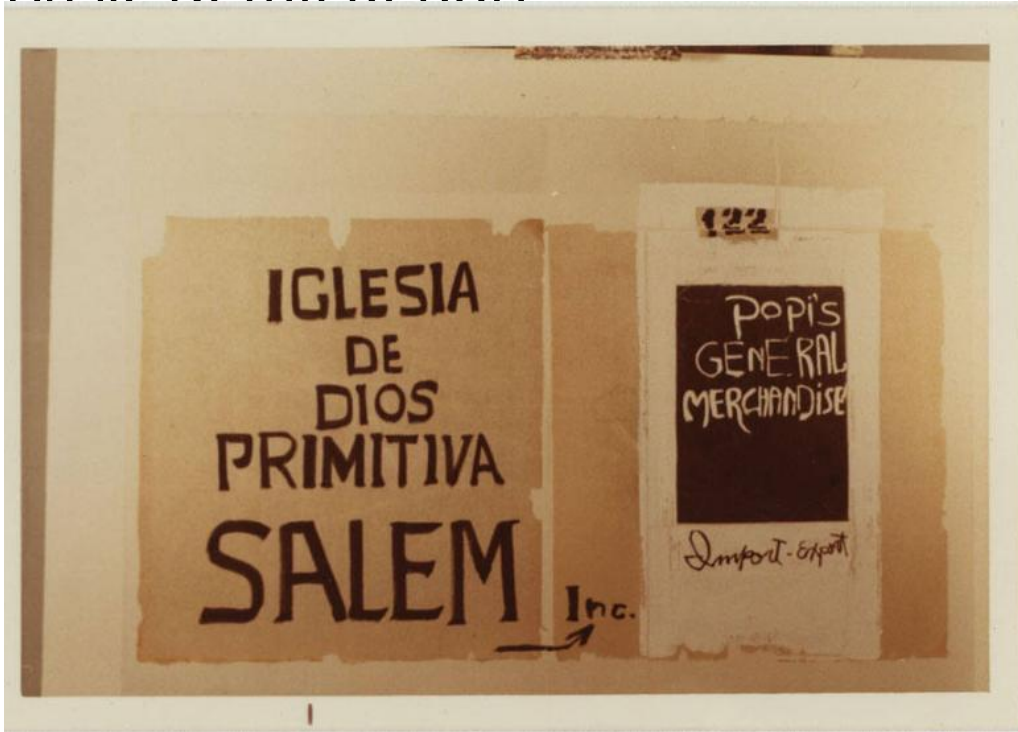 IGLESIA
DE
DIOS
PRIMITIVA
SALEM
Inc.
122
POPi's
GENERAL
MERCHANDiSE
Import-Export